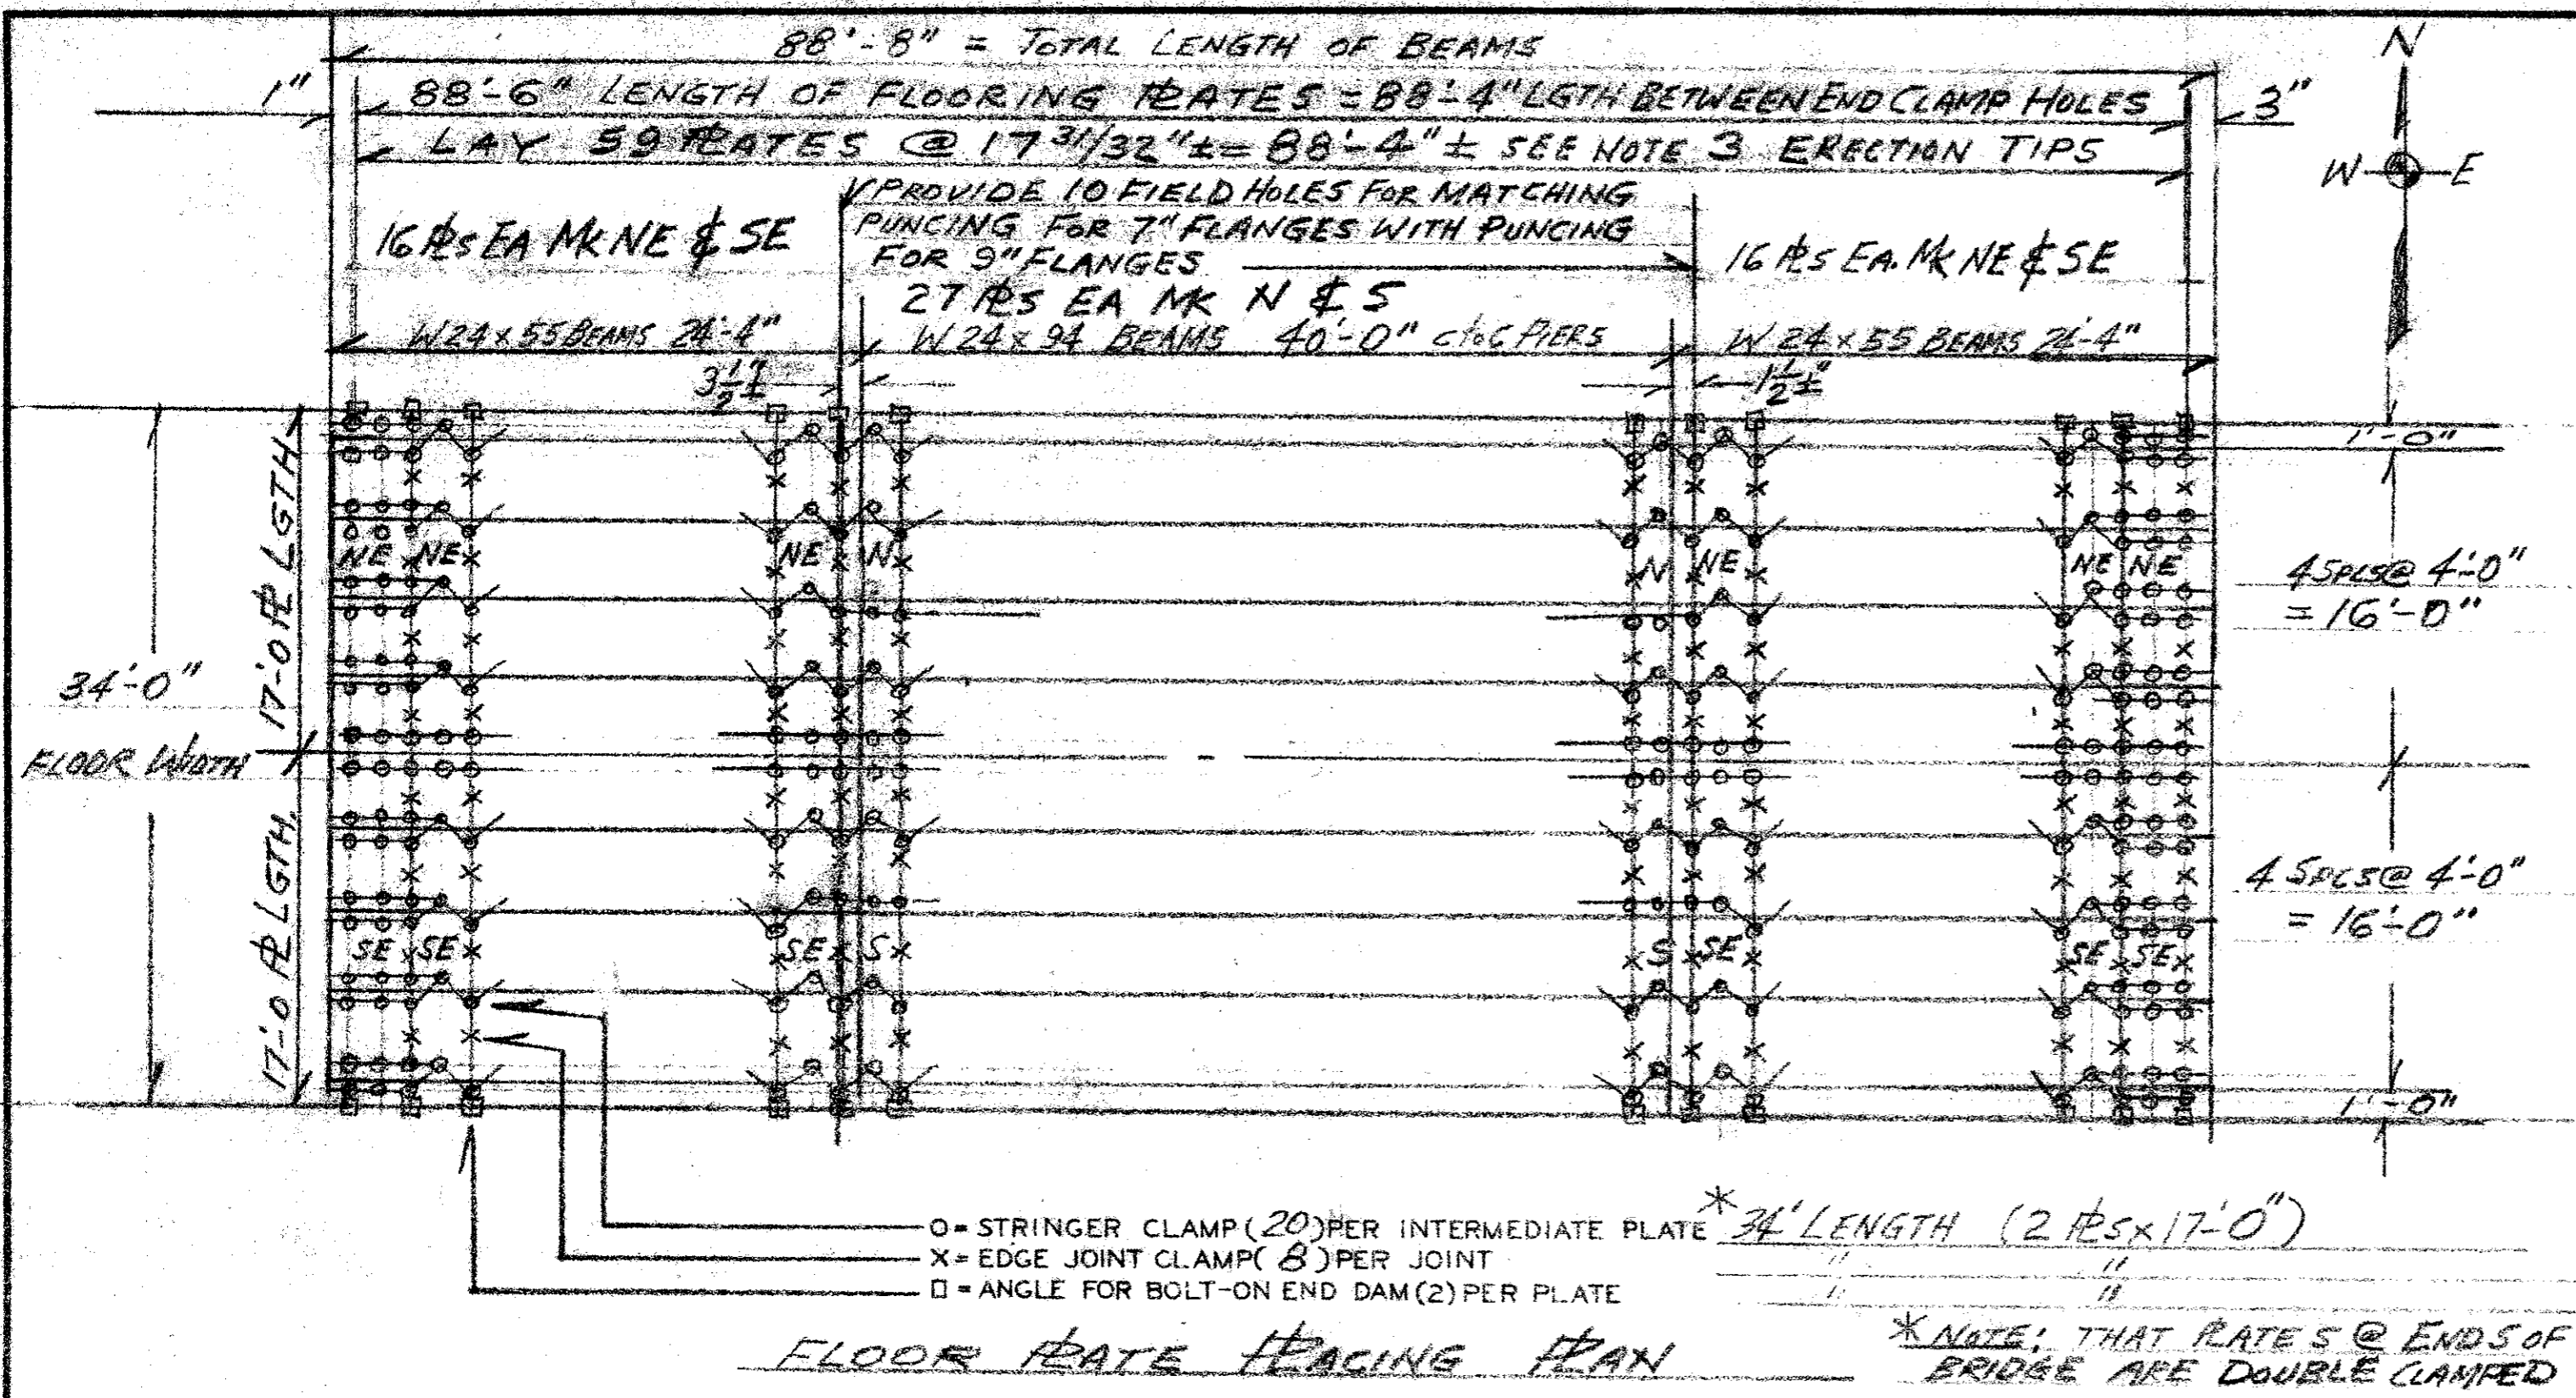 88'-8" = TOTAL LENGTH OF BEAMS
N
1"
88'-6" LENGTH OF FLOORING PLATES = 88'-4" LGTH BETWEEN END CLAMP HOLES
3"
LAY 59 PLATES @ 17 31/32" ± = 88'-4" ± SEE NOTE 3 ERECTION TIPS
W E
PROVIDE 10 FIELD HOLES FOR MATCHING
PUNCING FOR 7" FLANGES WITH PUNCING
FOR 9" FLANGES
16 PLS EA MK NE & SE
16 PLS EA. MK NE & SE
27 PLS EA MK N & S
W 24 x 55 BEAMS 24'-4"
W 24 x 94 BEAMS 40'-0" C to C PIERS
W 24 x 55 BEAMS 24'-4"
3 1/2" ±
1 1/2" ±
1'-0"
17'-0 PL LGTH
NE NE
NE N
N NE
NE NE
4 SPCS @ 4'-0"
= 16'-0"
34'-0"
FLOOR WIDTH
17'-0 PL LGTH.
4 SPCS @ 4'-0"
= 16'-0"
SE SE
SE S
S SE
SE SE
1'-0"
O = STRINGER CLAMP (20) PER INTERMEDIATE PLATE * 34' LENGTH (2 PLS x 17'-0")
X = EDGE JOINT CLAMP (8) PER JOINT " "
□ = ANGLE FOR BOLT-ON END DAM (2) PER PLATE " "
FLOOR PLATE PLACING PLAN
* NOTE: THAT PLATES @ ENDS OF
BRIDGE ARE DOUBLE CLAMPED